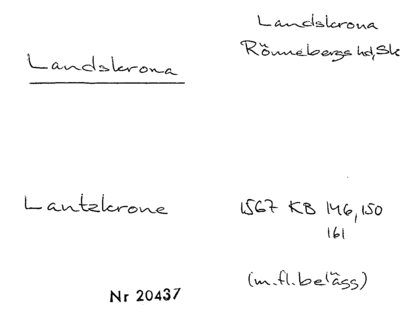 Landskrona
Rönnebergs hd, Sk
Landskrona
Lantzkrone
1567 KB 146, 150
161
(m.fl. belägg)
Nr 20437